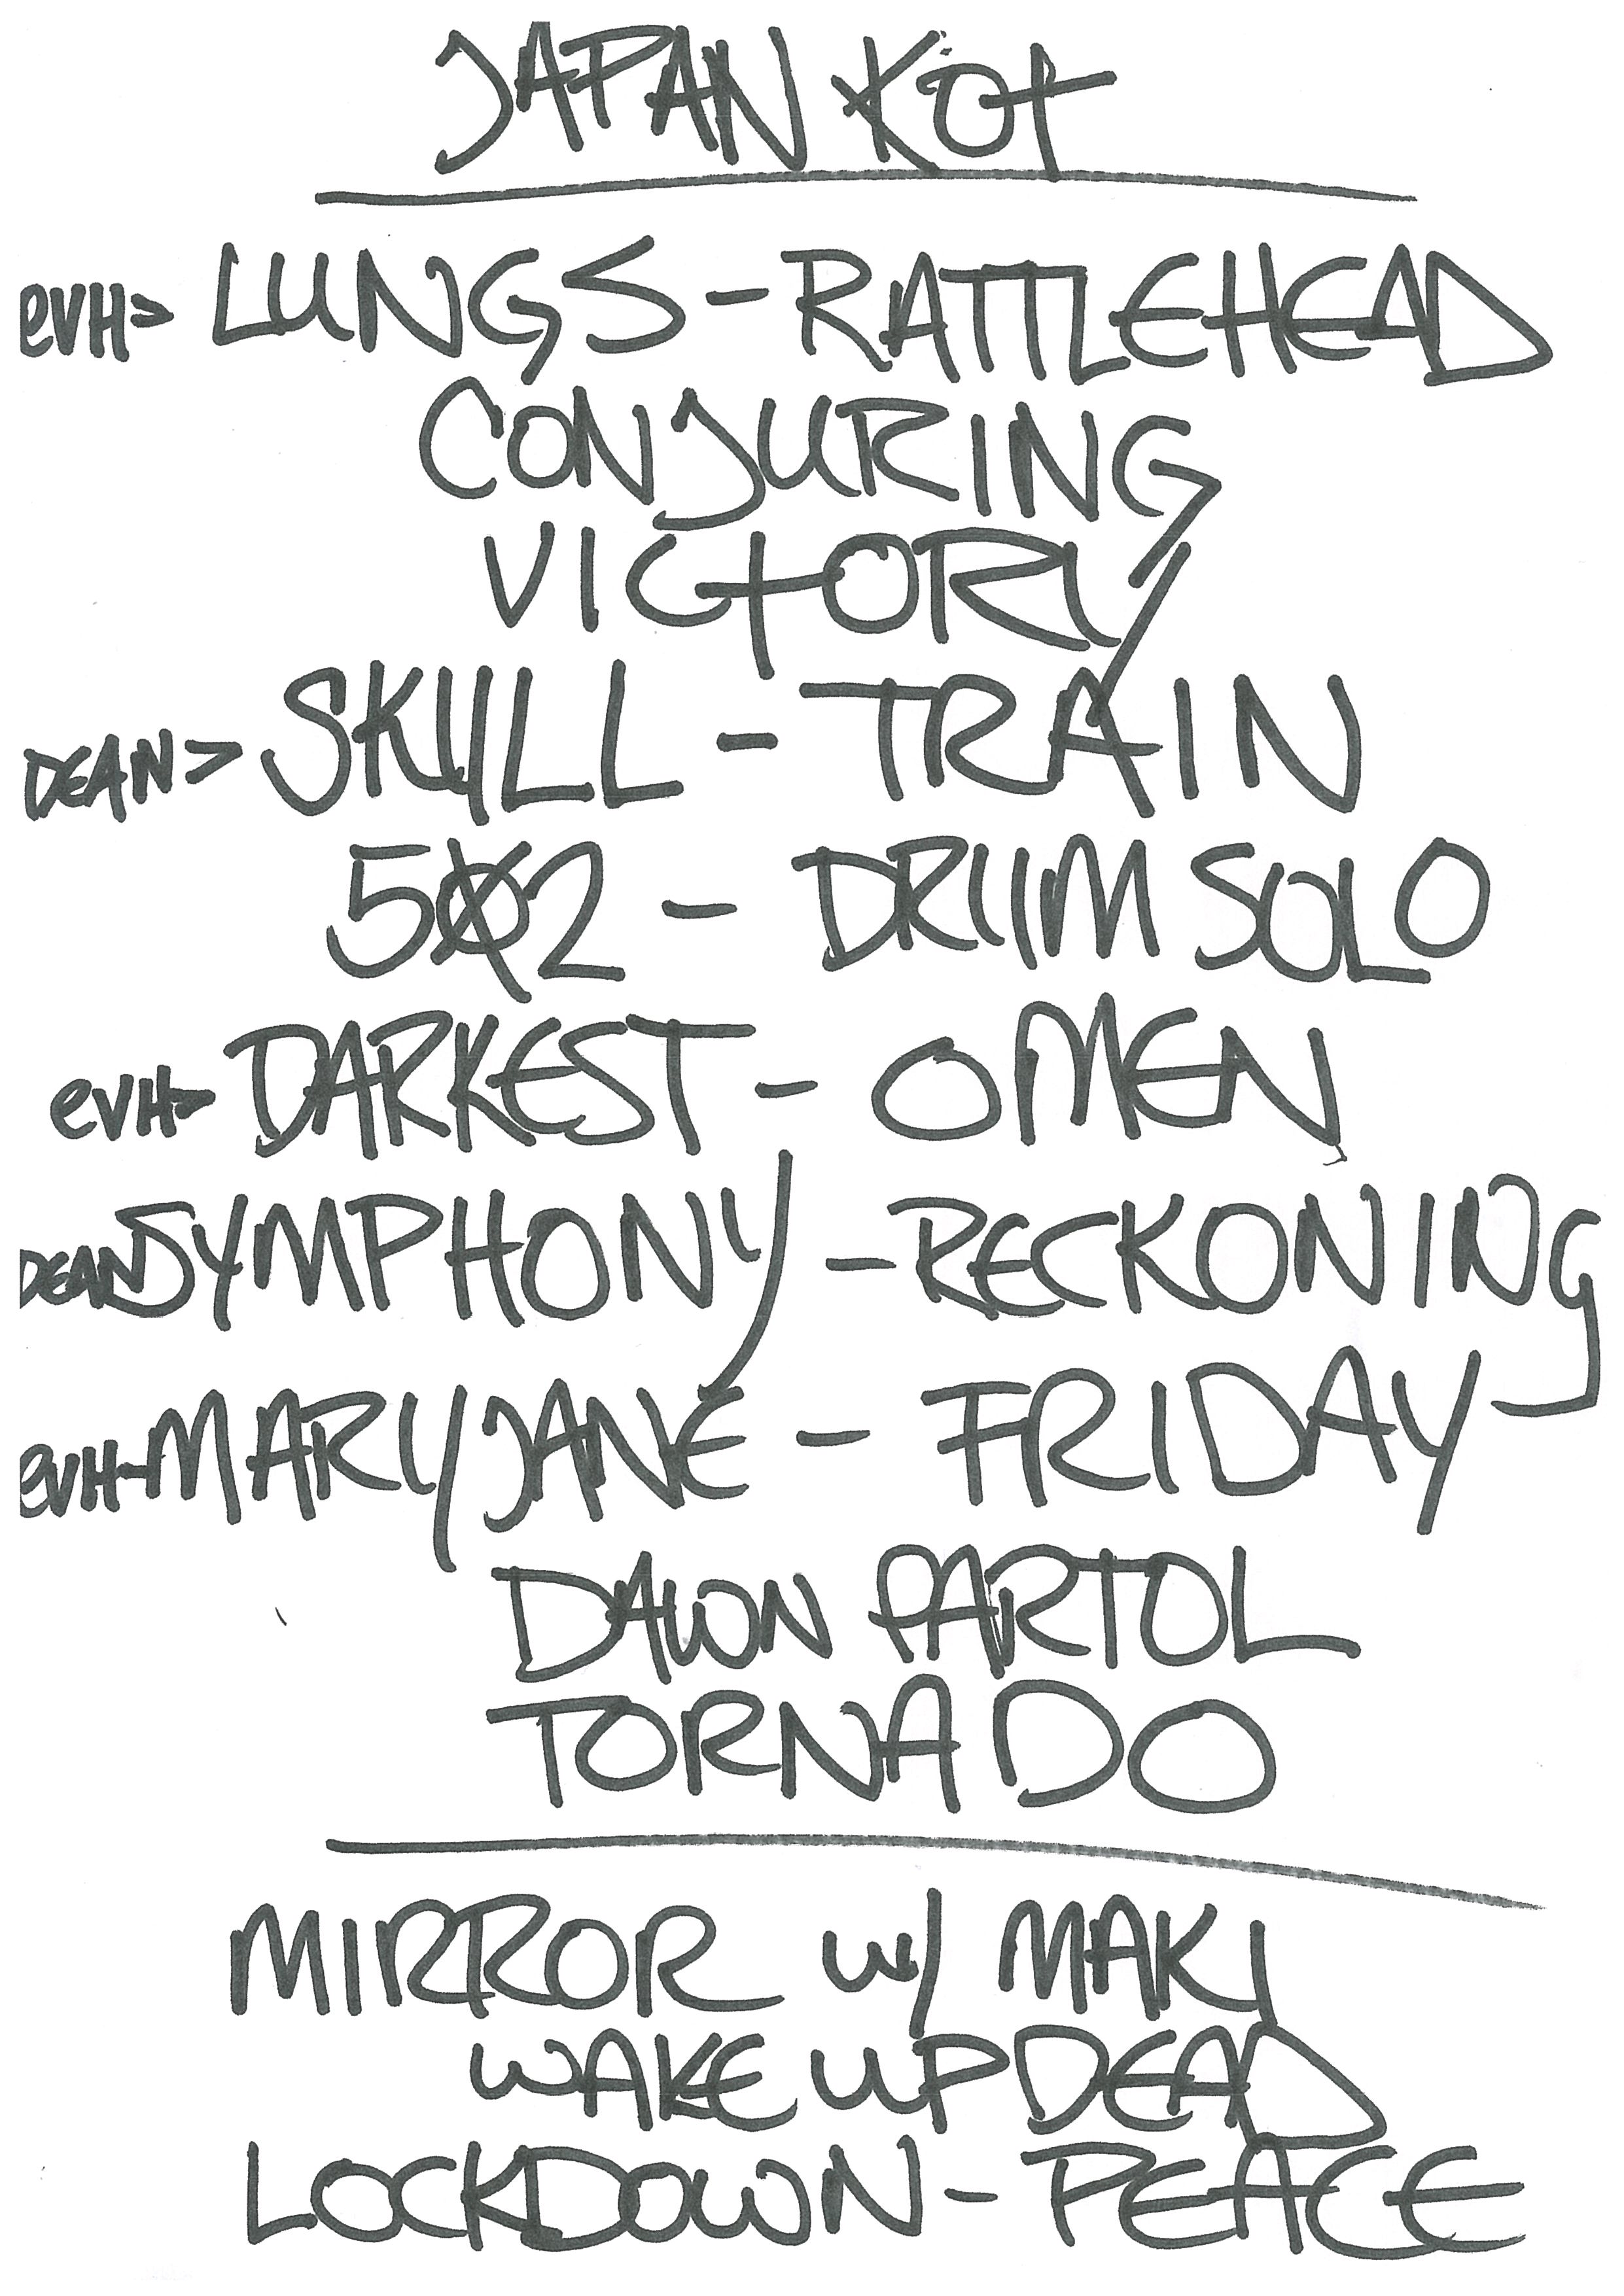 JAPAN KOT
EVH> LUNGS - RATTLEHEAD
CONJURING
VICTORY
DEAN> SKULL - TRAIN
502 - DRUM SOLO
EVH> DARKEST - OMEN
DEAN SYMPHONY - RECKONING
EVH- MARY JANE - FRIDAY
DAWN PARTOL
TORNADO
MIRROR W/ MAKI
WAKE UP DEAD
LOCKDOWN - PEACE